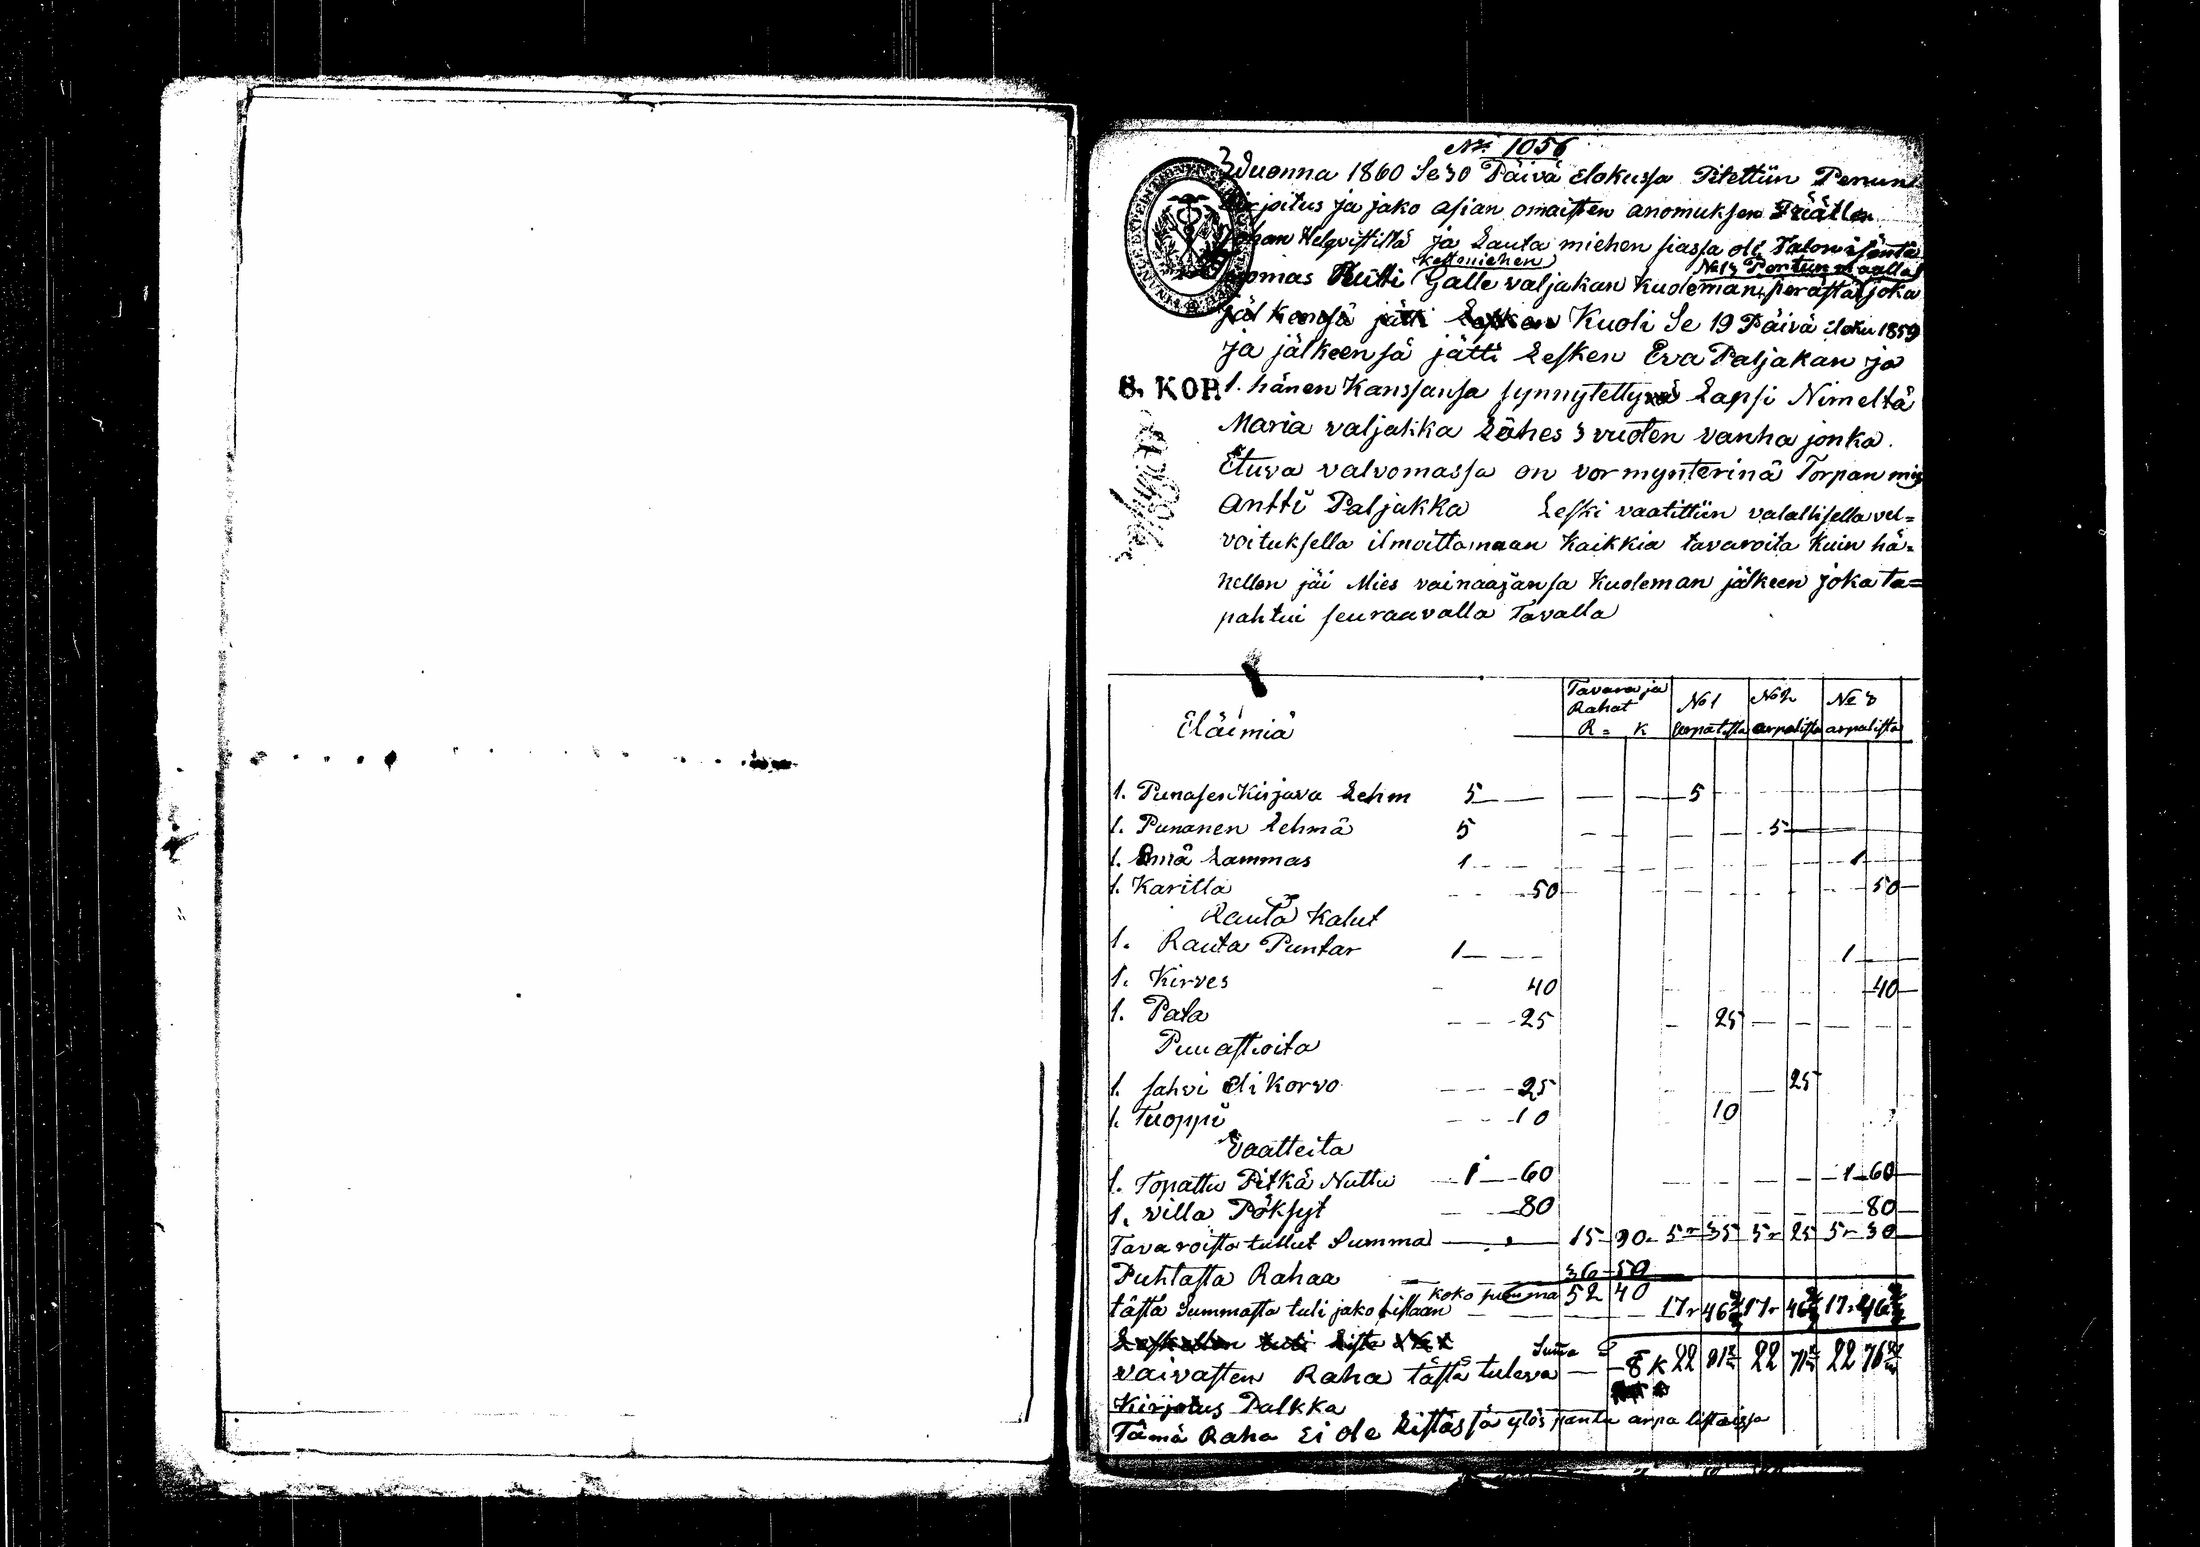 No 1056
Wuonna 1860 Se 30 Päivä elokussa Pitettiin Perun
kirjoitus ja jako asian omaisten anomuksen
Johan Helqvistiltä ja Lauta miehen siassa oli Talon isäntä
Kestomiehen No 13 Pertun maalla
Tuomas Galle valjakan kuoleman perästä joka
jälkensä jätti Lesken Kuoli Se 19 Päivä eloku 1859
ja jälkeensä jätti Lesken Eva Paljakan ja
8. KOP. 1. hänen Kanssansa synnytetty Lapsi Nimeltä
Maria valjakka Lähes 3 vuoten vanha jonka
Etuva valvomassa on vormynterinä Torpan mies
Antti Paljakka Leski vaatittiin valallisella vel=
voituksella ilmoittamaan Kaikkia tavaroita Kuin hä=
nellen jäi Mies vainaajansa Kuoleman jälkeen joka ta=
pahtui seuraavalla Tavalla
Tavara ja Rahat No 1 No 2 No 3
Eläimiä R = K arpalista arpalista arpalista
1. Punasen Kirjava Lehm 5 — — — — 5
1. Punanen Lehmä 5 — — — — 5
1. Emä Lammas 1 — — 1
1. Karitta — — 50 — — 50
Rauta Kalut
1. Rauta Puntar 1 — — — 1
1. Kirves — 40 — 40
1. Pata — — 25 — 25 — — — —
Puuastioita
1. sahvi eli Korvo — — 25 — 25
1. Tuoppi — — 10 10
Vaatteita
1. Topattu Pitkä Nuttu 1 — 60 — — 1 — 60
1. villa Pöksyt — 80 — — 80
Tavaroista tullut Summa 15 - 90 - 5 r 35 5 r 25 5 r 30
Puhtasta Rahaa 36 - 50
koko summa 52 40
tästä Summasta tuli jako Listaan — — 17 r 46 2/3 17 r 46 2/3 17 r 46 2/3
Summa
vaivasten Raha tästä tuleva — 8 K 22 81 2/3 22 71 2/3 22 76 2/3
Kirjotus Palkka
Tämä Raha Ei ole Listassa ylös pantu arpa listaissa